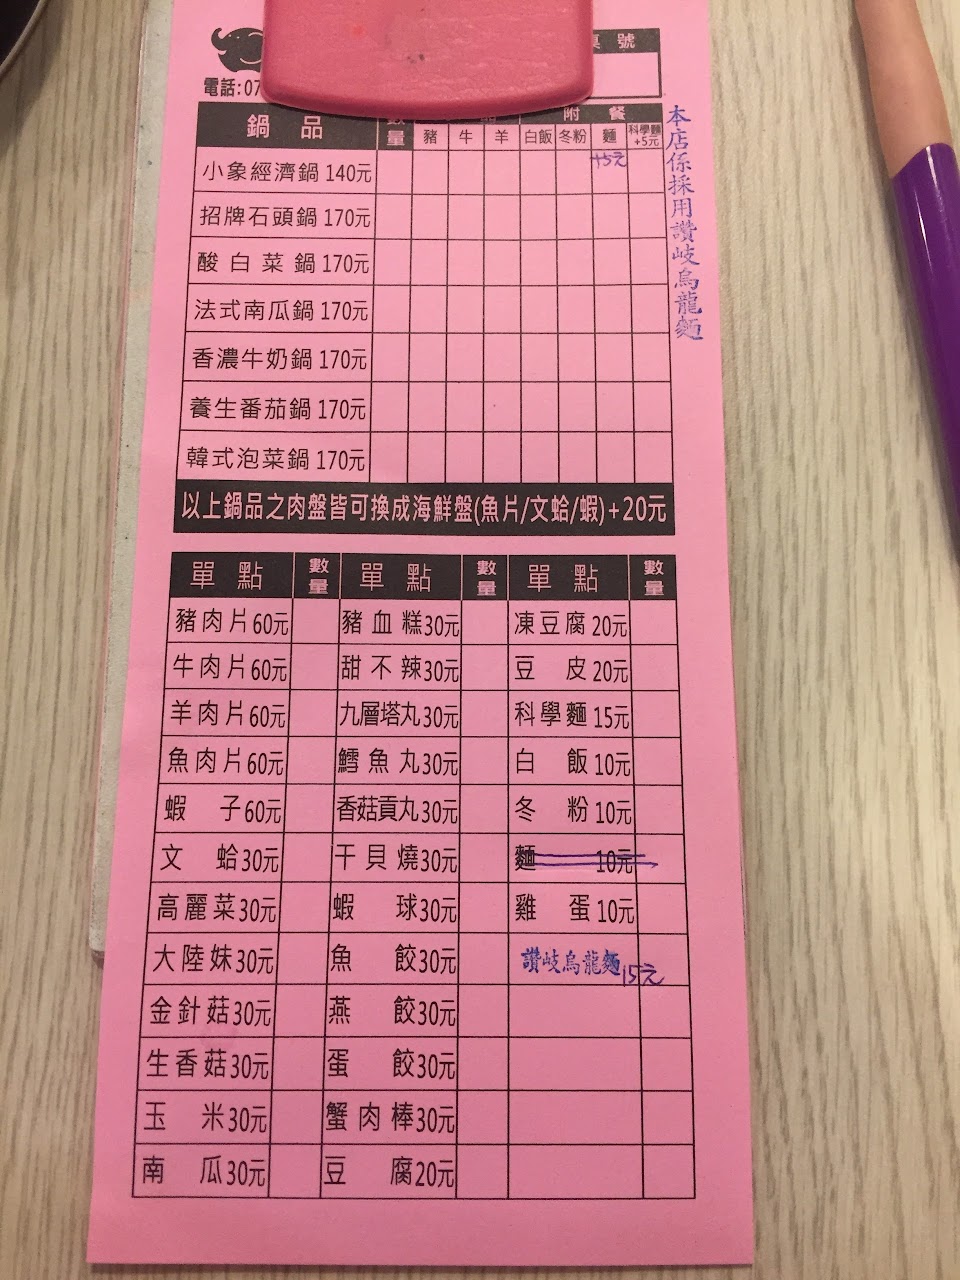 桌號
電話:07
鍋品 數量 豬 牛 羊 附餐 白飯 冬粉 麵 科學麵+5元
+5元
小象經濟鍋 140元
招牌石頭鍋 170元
酸白菜鍋 170元
法式南瓜鍋 170元
香濃牛奶鍋 170元
養生番茄鍋 170元
韓式泡菜鍋 170元
本店係採用讚岐烏龍麵
以上鍋品之肉盤皆可換成海鮮盤(魚片/文蛤/蝦)+20元
單點 數量 單點 數量 單點 數量
豬肉片60元 豬血糕30元 凍豆腐20元
牛肉片60元 甜不辣30元 豆皮20元
羊肉片60元 九層塔丸30元 科學麵15元
魚肉片60元 鱈魚丸30元 白飯10元
蝦子60元 香菇貢丸30元 冬粉10元
文蛤30元 干貝燒30元 麵10元
高麗菜30元 蝦球30元 雞蛋10元
大陸妹30元 魚餃30元 讚岐烏龍麵15元
金針菇30元 燕餃30元
生香菇30元 蛋餃30元
玉米30元 蟹肉棒30元
南瓜30元 豆腐20元